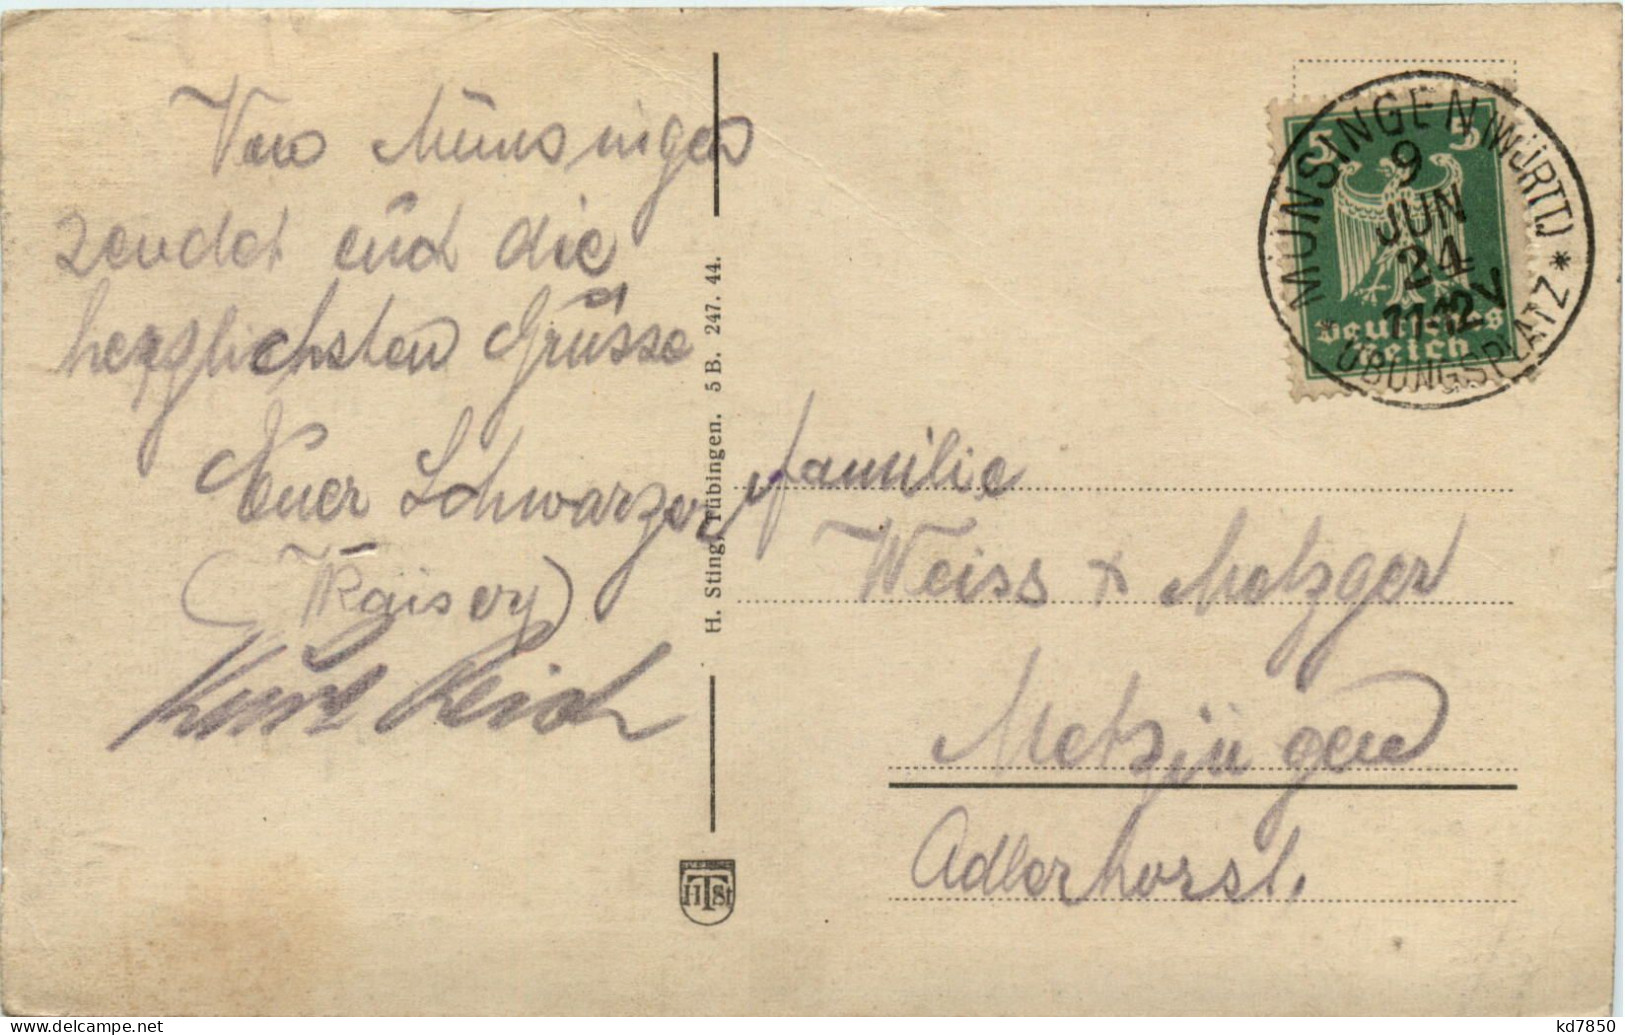 Von Münsingen
sendet euch die
herzlichsten Grüsse
Euer Schwarzer
(Kaiser)
Kurt Reich
H. Sting, Tübingen. 5 B. 247. 44.
HTSt
5 5
Deutsches
Reich
MÜNSINGEN (WÜRTT)
9
JUN
24
11-12 V
* ÜBUNGSPLATZ *
Familie
Weiss & Metzger
Metzingen
Adlerhorst.
kd7850